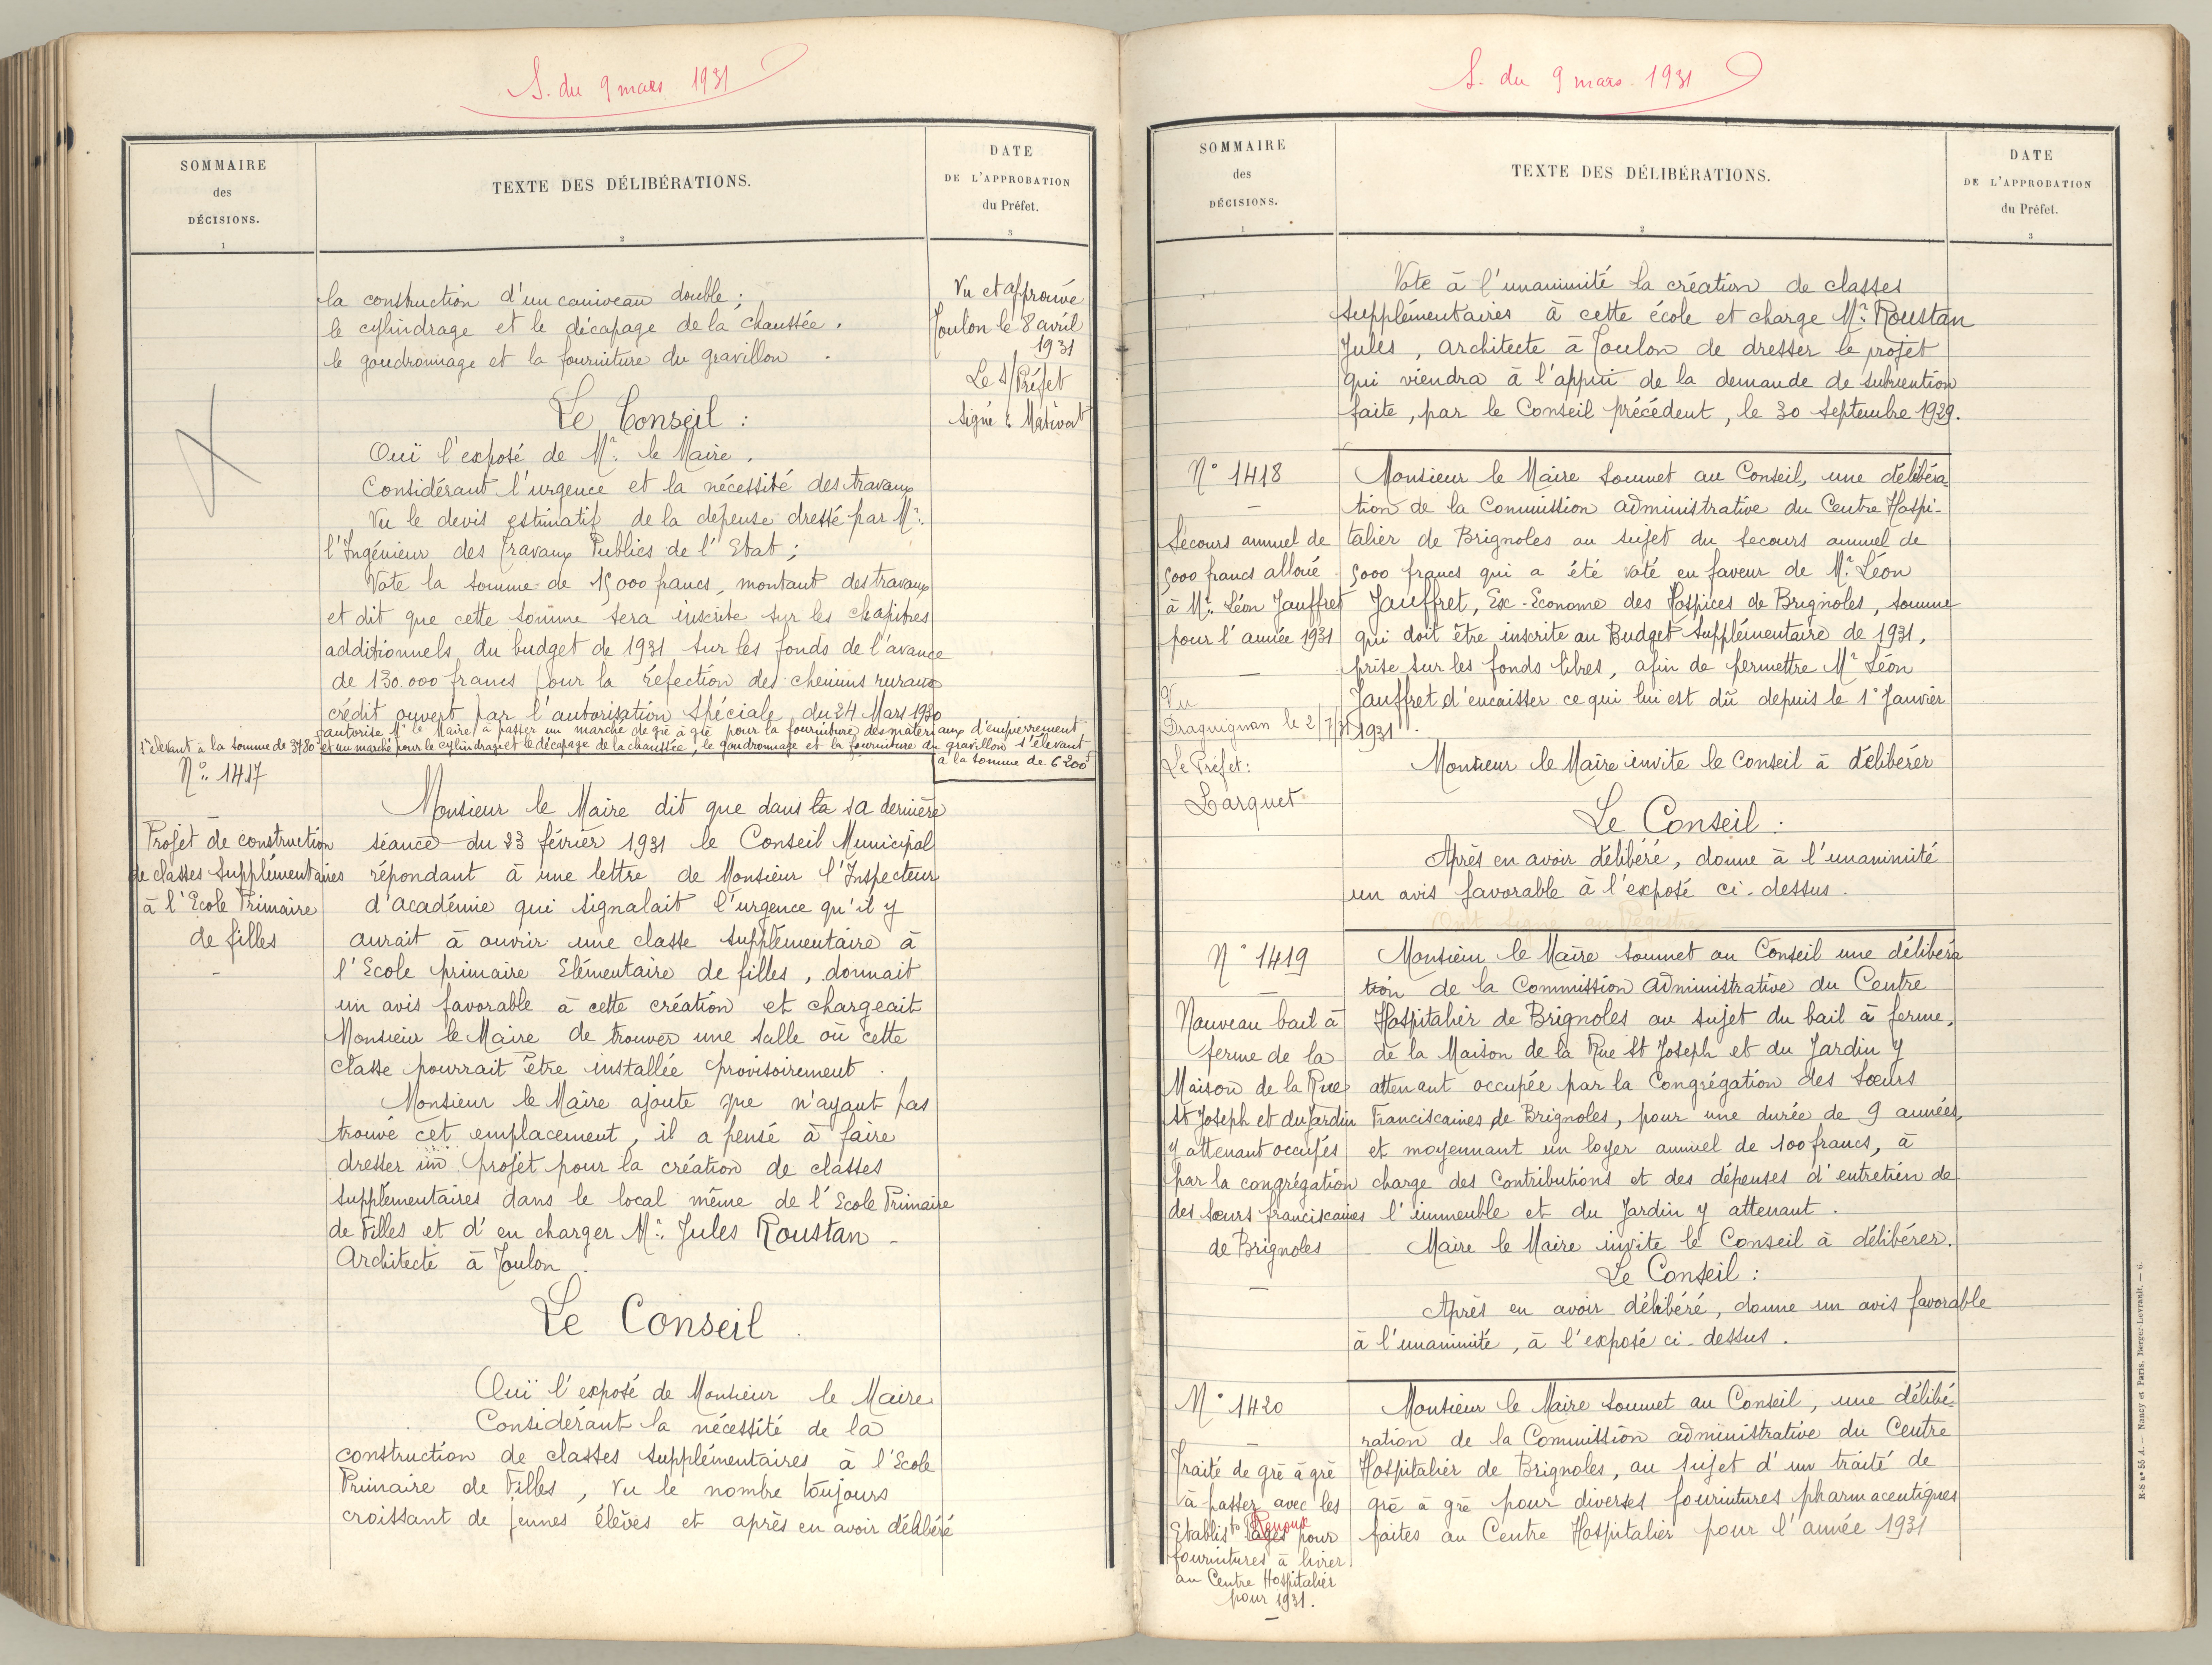 S. du 9 mars 1931
SOMMAIRE
des
DÉCISIONS.
1
TEXTE DES DÉLIBÉRATIONS.
2
DATE
DE L'APPROBATION
du Préfet.
3
la construction d'un caniveau double ;
le cylindrage et le décapage de la chaussée .
le goudronnage et la fourniture du gravillon .
Le Conseil :
Ouï l'exposé de Mr. le Maire .
Considérant l'urgence et la nécessité des travaux
Vu le devis estimatif de la dépense dressé par Mr.
l'Ingénieur des Travaux Publics de l'Etat ;
Vote la somme de 15000 francs, montant des travaux
et dit que cette somme sera inscrite sur les chapitres
additionnels du budget de 1931 sur les fonds de l'avance
de 130.000 francs pour la réfection des chemins ruraux
crédit ouvert par l'autorisation spéciale du 24 Mars 1930
autorise Mr le Maire à passer un marché de gré à gré pour la fourniture des matériaux d'empierrement
s'élevant à la somme de 3780 et un marché pour le cylindrage et le décapage de la chaussée, le goudronnage et la fourniture du gravillon s'élevant
à la somme de 6200f
Vu et approuvé
Toulon le 8 avril
1931
Le s/Préfet
signé : Mativat
N° 1417
Projet de construction
de classes supplémentaires
à l'Ecole Primaire
de filles
Monsieur le Maire dit que dans la sa dernière
séance du 23 février 1931 le Conseil Municipal
répondant à une lettre de Monsieur l'Inspecteur
d'académie qui signalait l'urgence qu'il y
aurait à ouvrir une classe supplémentaire à
l'Ecole primaire Elémentaire de filles, donnait
un avis favorable à cette création et chargeait
Monsieur le Maire de trouver une salle où cette
classe pourrait être installée provisoirement .
Monsieur le Maire ajoute que n'ayant pas
trouvé cet emplacement, il a pensé à faire
dresser un projet pour la création de classes
supplémentaires dans le local même de l'Ecole Primaire
de Filles et d'en charger Mr. Jules Roustan -
Architecte à Toulon .
Le Conseil .
Ouï l'exposé de Monsieur le Maire
Considérant la nécessité de la
construction de classes supplémentaires à l'Ecole
Primaire de Filles, vu le nombre toujours
croissant de jeunes élèves et après en avoir délibéré
S. du 9 mars. 1931
SOMMAIRE
des
DÉCISIONS.
1
TEXTE DES DÉLIBÉRATIONS.
2
DATE
DE L'APPROBATION
du Préfet.
3
Vote à l'unanimité la création de classes
supplémentaires à cette école et charge Mr. Roustan
Jules, architecte à Toulon de dresser le projet
qui viendra à l'appui de la demande de subvention
faite, par le Conseil précédent, le 30 septembre 1929.
N° 1418
Secours annuel de
5000 francs alloué
à Mr. Léon Jauffret
pour l'année 1931
Vu
Draguignan le 2/7/31
Le Préfet :
Larquet
Monsieur le Maire soumet au Conseil, une délibéra
tion de la Commission administrative du Centre Hospi-
talier de Brignoles au sujet du secours annuel de
5000 francs qui a été voté en faveur de Mr. Léon
Jauffret, Ex-Econome des Hospices de Brignoles, somme
qui doit être inscrite au Budget supplémentaire de 1931,
prise sur les fonds libres, afin de permettre Mr Léon
Jauffret d'encaisser ce qui lui est dû depuis le 1° Janvier
1931 .
Monsieur le Maire invite le Conseil à délibérer
Le Conseil :
Après en avoir délibéré, donne à l'unanimité
un avis favorable à l'exposé ci-dessus .
Ont signé au Registre
N° 1419
Nouveau bail à
ferme de la
Maison de la Rue
St Joseph et du Jardin
y attenant occupés
par la congrégation
des sœurs franciscaines
de Brignoles
Monsieur le Maire soumet au Conseil une délibéra
tion de la Commission administrative du Centre
Hospitalier de Brignoles au sujet du bail à ferme,
de la Maison de la Rue St Joseph et du Jardin y
attenant occupée par la Congrégation des Sœurs
Franciscaines de Brignoles, pour une durée de 9 années,
et moyennant un loyer annuel de 100 francs, à
charge des Contributions et des dépenses d'entretien de
l'immeuble et du Jardin y attenant .
Maire le Maire invite le Conseil à délibérer.
Le Conseil :
Après en avoir délibéré, donne un avis favorable
à l'unanimité, à l'exposé ci-dessus .
N° 1420
Traité de gré à gré
à passer avec les
Etablists Pagès Renoux pour
fournitures à livrer
au Centre Hospitalier
pour 1931.
Monsieur le Maire soumet au Conseil, une délibé-
ration de la Commission administrative du Centre
Hospitalier de Brignoles, au sujet d'un traité de
gré à gré pour diverses fournitures pharmaceutiques
faites au Centre Hospitalier pour l'année 1931
R-S n° 55 A. — Nancy et Paris, Berger-Levrault. — 6.